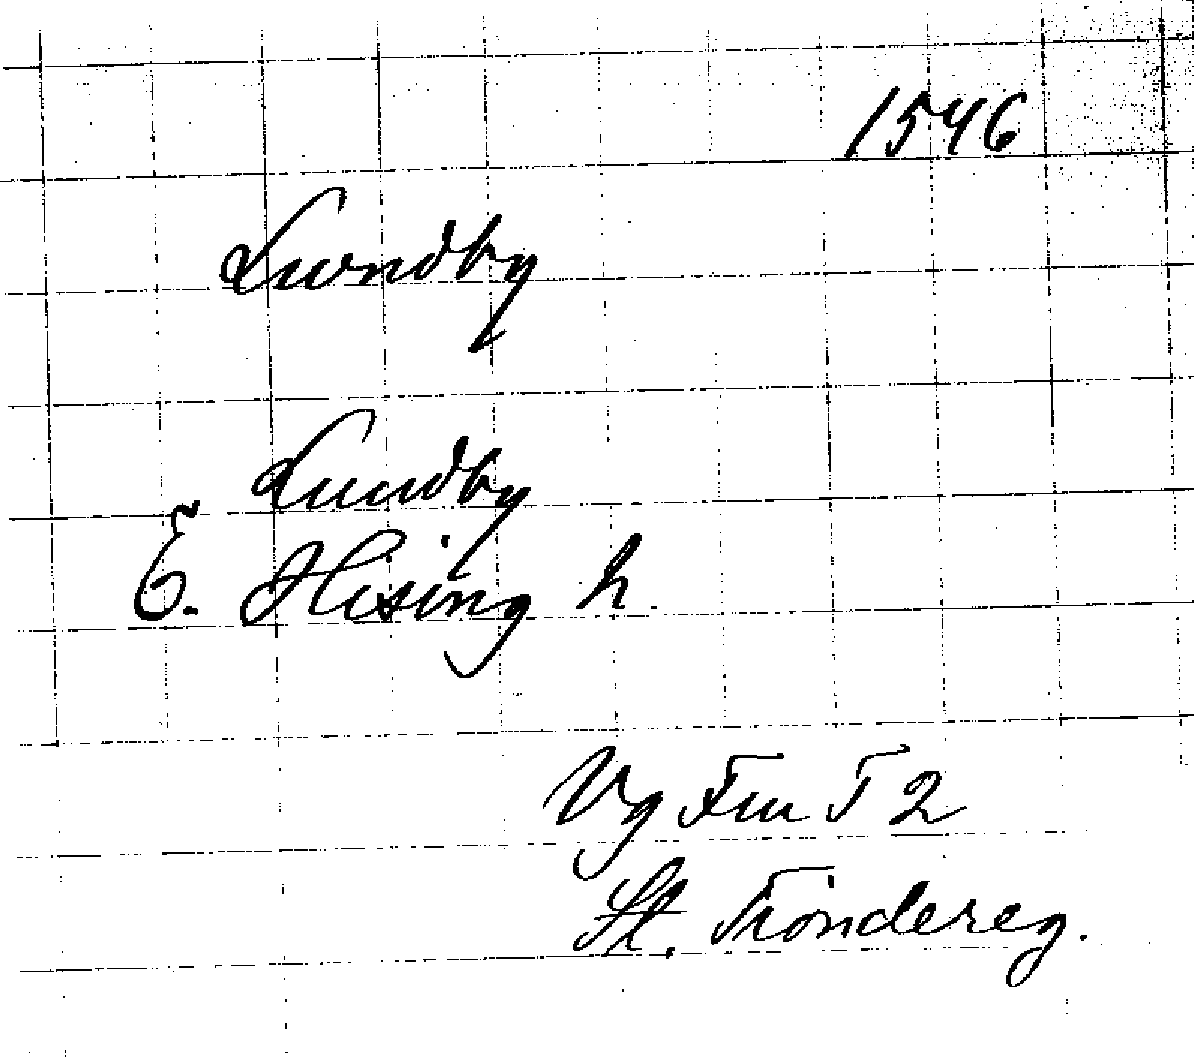 1546
Lundby
Lundby
Ö. Hising h.
Vg Fm T 2
St. Tiondereg.